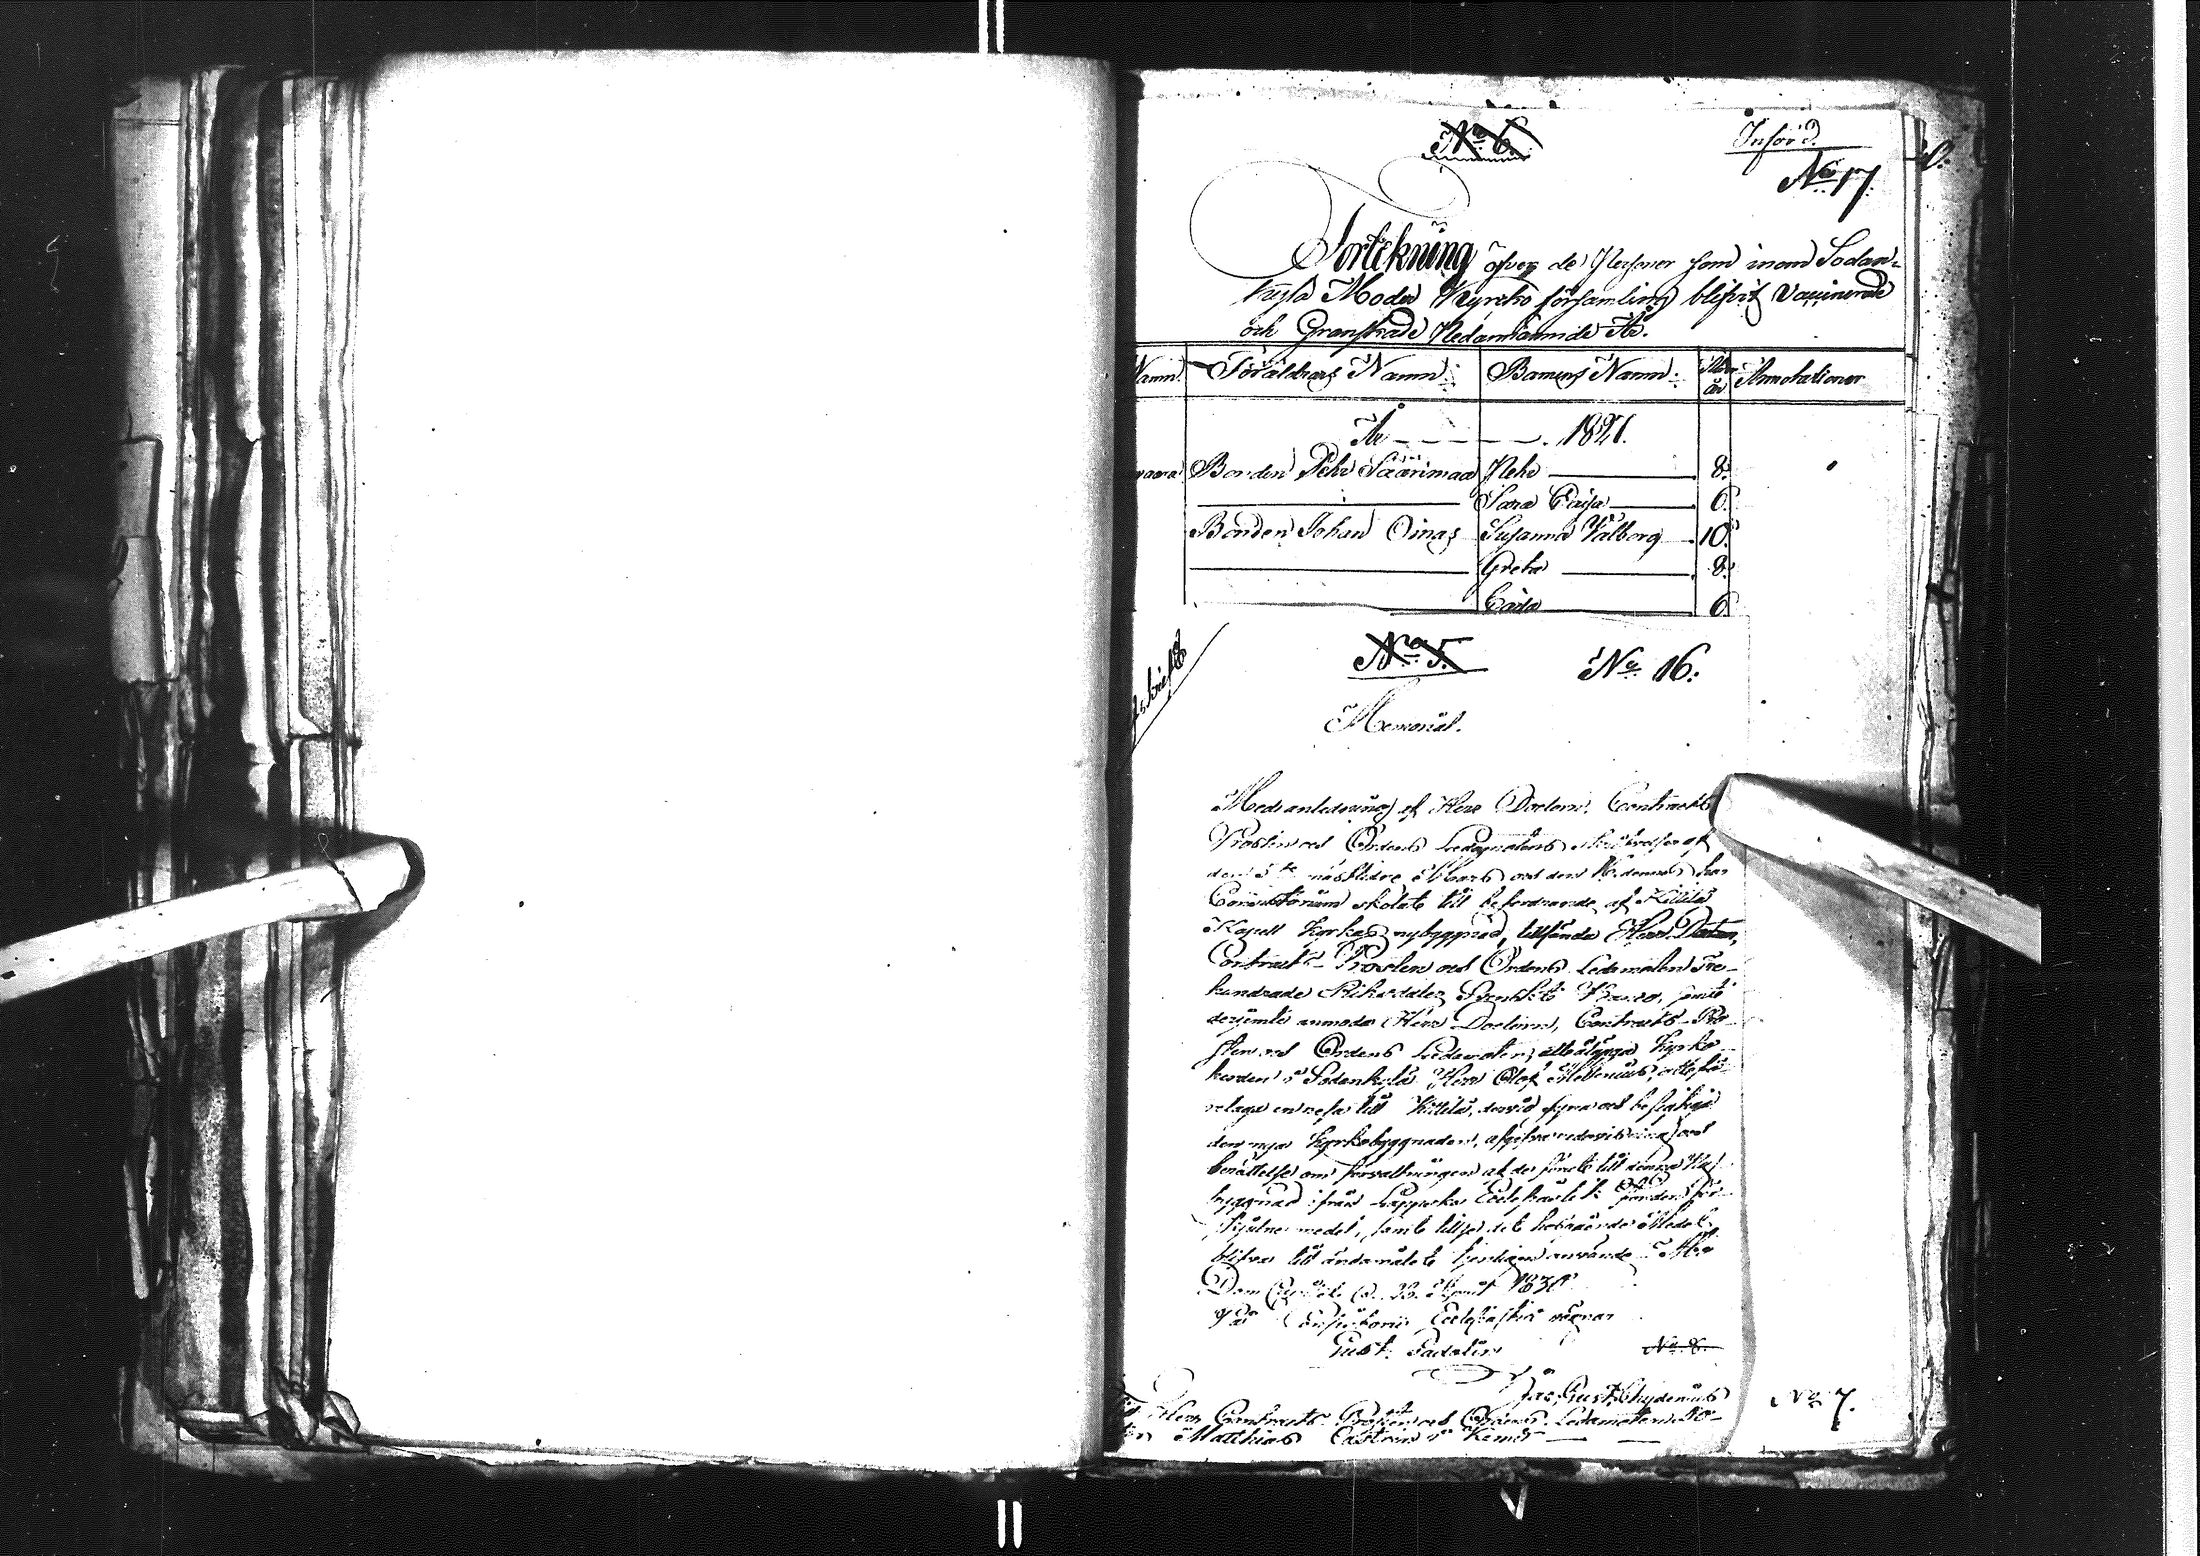 No 6.
Införd.
No 17.
Förtekning öfver de Personer som inom Sodan-
kylä Moder Kyrko församling blifvit Vaccinerade
och Granskade Nedannämnde År.
Namn. Föräldrars Namn. Barnens Namn. Ålder år Annotationer
År — — — 1821.
vaara Bonden Pehr Säärimaa Pehr 8.
Sara Caisa 6.
Bonden Johan Oinas Susanna Valborg 10.
Greta 8.
Caisa 6.
No 5. No 16.
Afskrift
Memorial.
Med anledning af Herr Doctorn, Contracts
Prosten och Ordens Ledamotens skrifvelse af
den 5te nästlidne Mars och den 16 dennes har
Consistorium skolat till befordrande af Kittilä
Kapell Kyrkas nybyggnad, tillsända Herr Doctorn,
Contracts-Prosten och Ordens Ledamoten Tre-
hundrade Riksdaler Svenskt Banco, samt
derjemte anmoda Herr Doctorn, Contracts-Pro-
sten och Ordens Ledamoten, Kyrko-
herden i Sodankylä Herr Olof Mellenius, att före-
taga en resa till Kittilä, derstäd syna och besigtiga
den nya Kyrkobyggnaden, afgifva redovisning och
berättelse om förvaltningen af de förut till denna Ny-
byggnad ifrån Lappska Ecclesiastik fonden för-
skjutne medel, samt tillse det Medel
blifva till ändamålet använde. Åbo
Dom Capitel d. 28. April 1830
På Consistorii Ecclesiastici vägnar
Gust. Gadolin
No 8.
Jac. Gust. Chydenius
Herr Contracts Prosten och Ordens Ledamoten Do-
Matthias Castrén i Kemi
No 7.